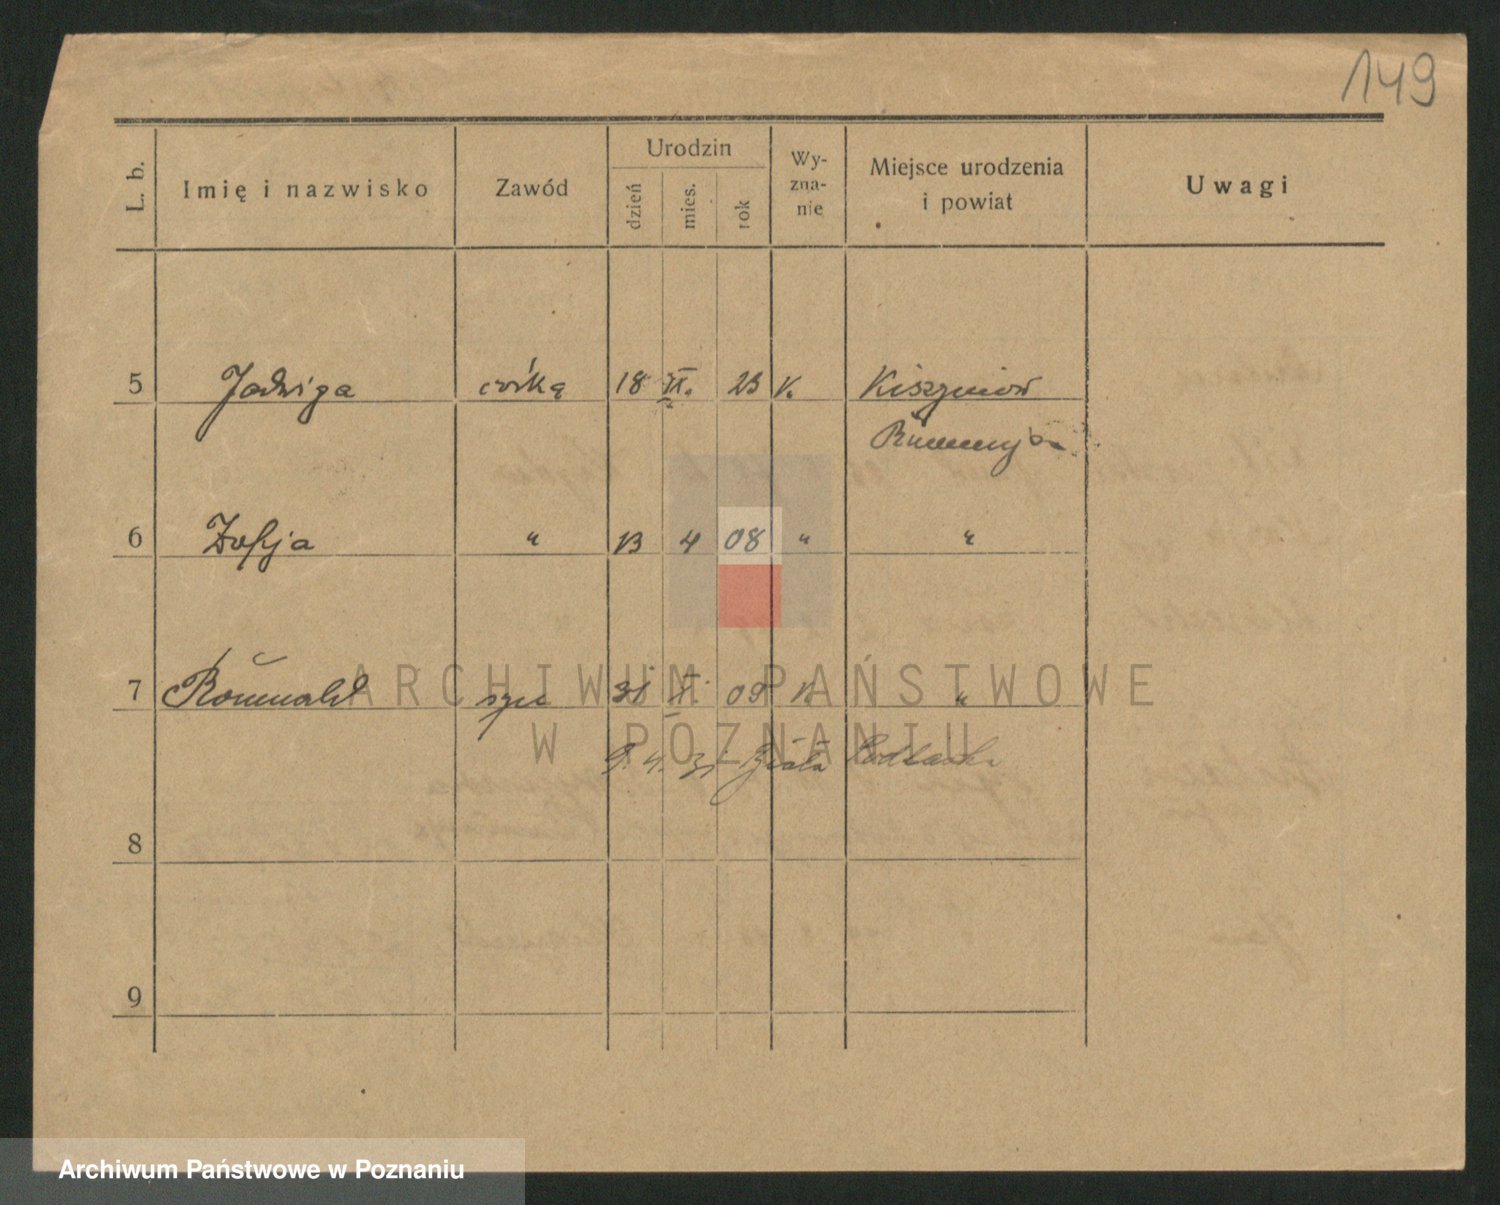 149
L. b. Imię i nazwisko Zawód Urodzin dzień mies. rok Wy-zna-nie Miejsce urodzenia i powiat Uwagi
5 Jadwiga córka 18 23 K. Kiszyniów
Rumunja
6 Zofja " 13 4 08 " "
7 Romuald syn 31 09 K. "
9. 4. 31 Biała Podlaska
8
9
ARCHIWUM PAŃSTWOWE
W POZNANIU
Archiwum Państwowe w Poznaniu